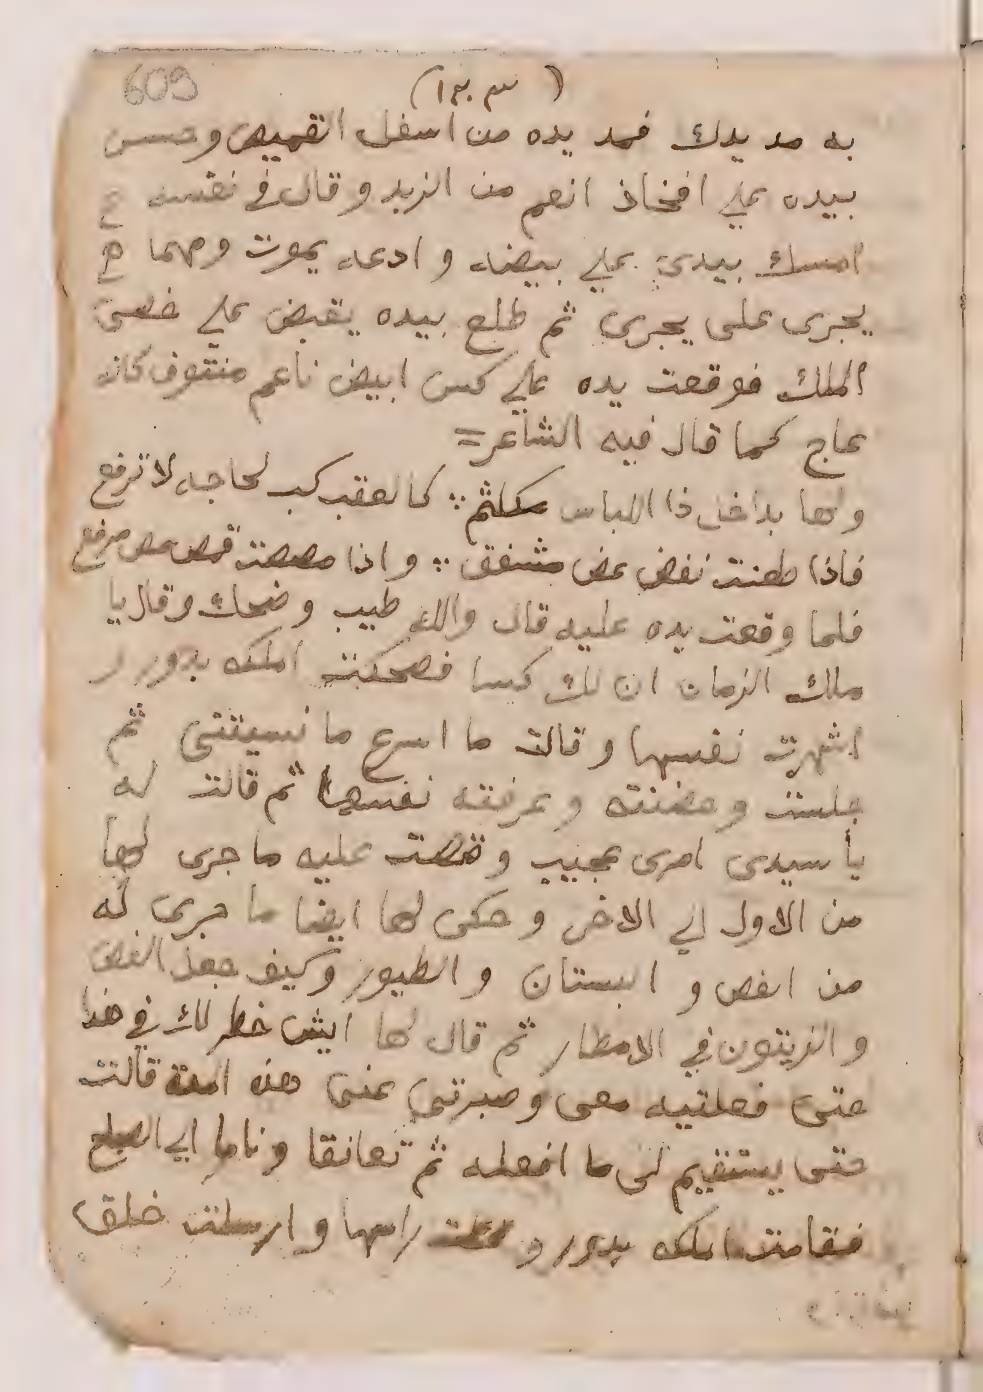 609
(١٣٠٣)
به مد يدك فمد يده من اسفل القميص وحسس
بيده علي افخاذ انعم من الزبد و قال في نفسه
امسك بيدى علي بيضه و ادعه يموت ومهما
يجرى على يجرى ثم طلع بيده يقبض علي خصى
الملك فوقعت يده علي كس ابيض ناعم منتوف كانه
عاج كما قال فيه الشاعر =
ولها بداخل ذا اللباس مكلثم ∴ كالعقب كب لحاجه لا ترفع
فاذا طعنت نفض عض مشفق ∴ و اذا مصصت قمص مص مرضع
فلما وقعت يده عليه قال والله طيب و ضحك وقال يا
ملك الزمان ان لك كسا فضحكت املكه بدور و
اشهرت نفسها و قالت ما اسرع ما نسيتنى ثم
جلست وحضنته و عرفته نفسها ثم قالت له
يا سيدى امرى عجيب و قصت عليه ما جرى لها
من الاول الي الاخر و حكى لها ايضا ما جرى له
من الفص و البستان و الطيور وكيف جعل الفص
و الزيتون في الامطار ثم قال لها ايش خطر لك في هذا
حتى فعلتيه معى وصبرتي عنى هذه المدة قالت
حتى يستقيم لى ما افعله ثم تعانقا وناما الي الصباح
فقامت الملكه بدور و راسها و ارسلت خلف